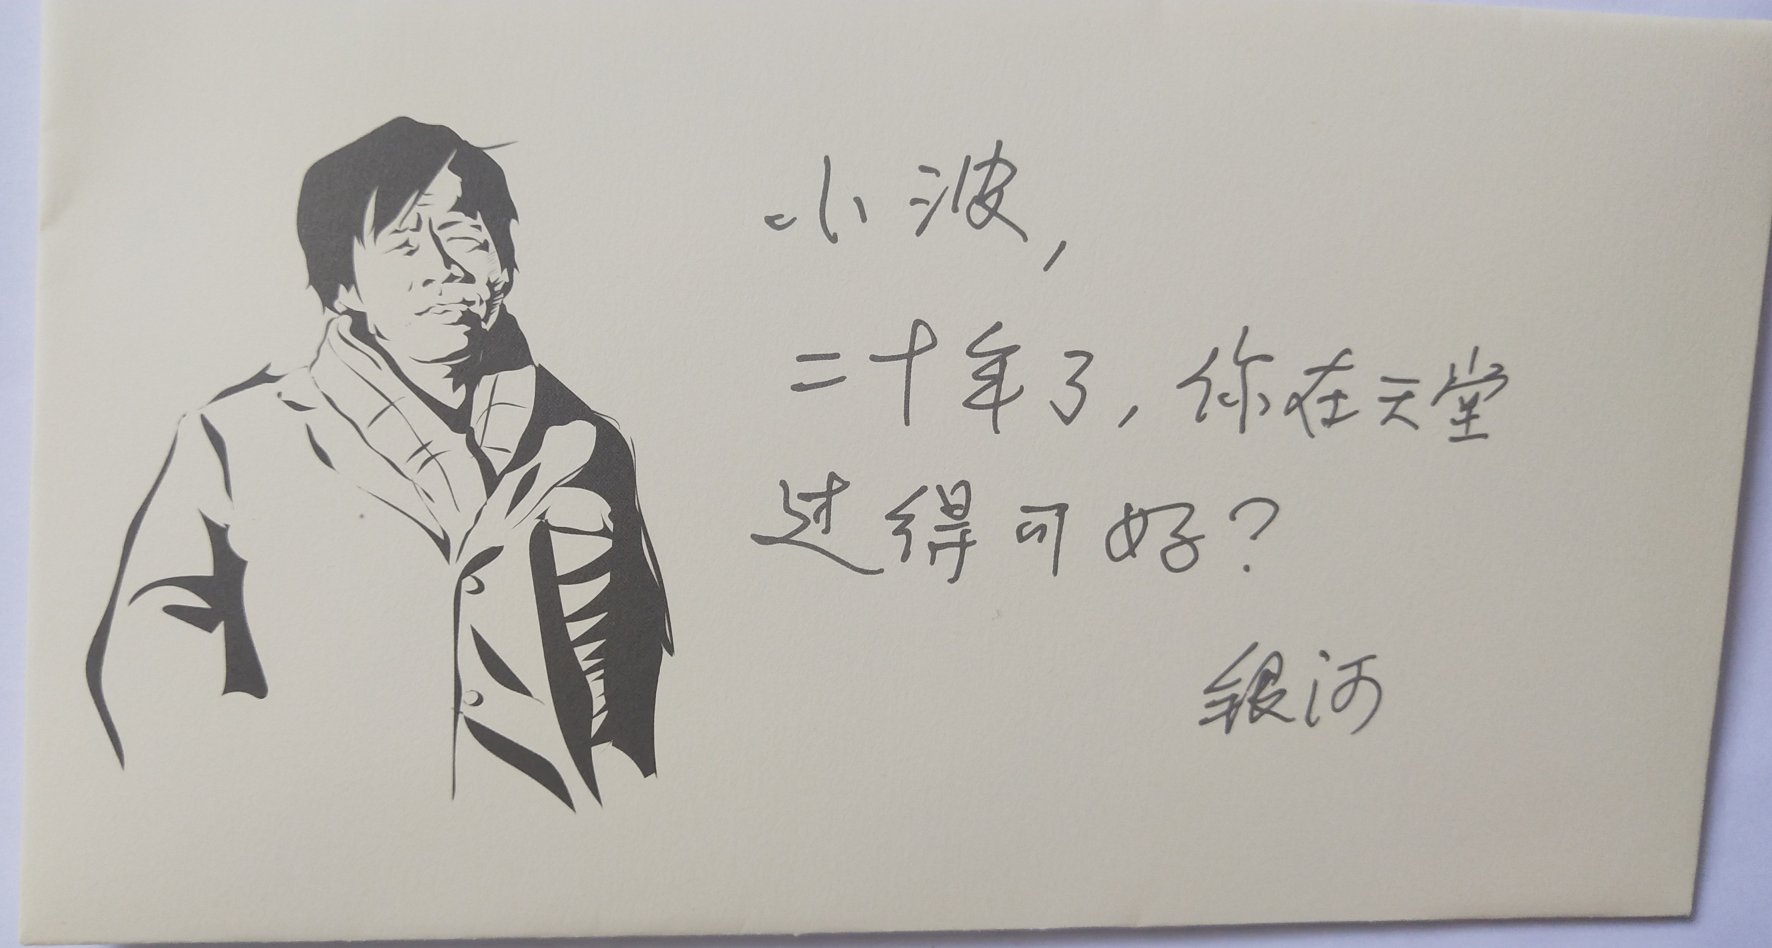 小波,
二十年了,你在天堂
过得可好?
银河